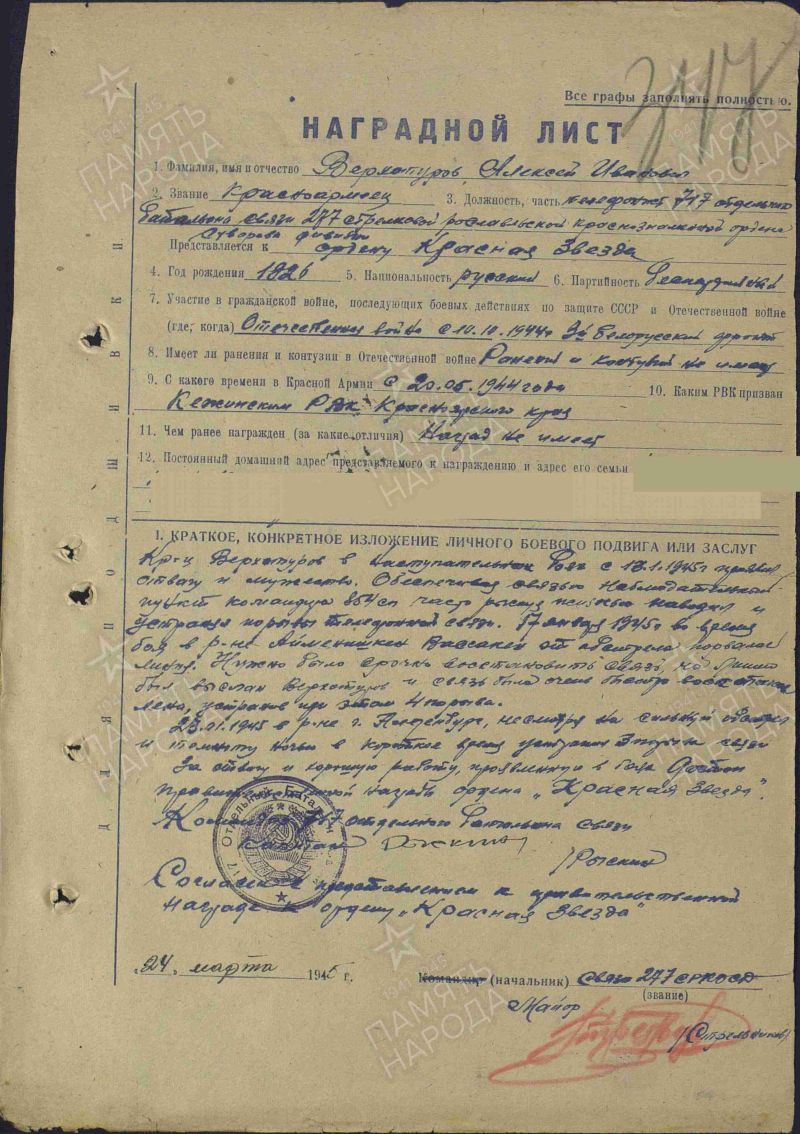 Все графы заполнять полностью.
НАГРАДНОЙ ЛИСТ
1. Фамилия, имя и отчество Верхотуров Алексей Иванович
2. Звание Красноармеец 3. Должность, часть телефонист 717 отдельного
батальона связи 277 стрелковой Рославльской краснознаменной ордена
Суворова дивизии
Представляется к ордену Красная Звезда
4. Год рождения 1926 5. Национальность русский 6. Партийность Беспартийный
7. Участие в гражданской войне, последующих боевых действиях по защите СССР и Отечественной войне
(где, когда) Отечественная война с 10.10.1944г 3й Белорусский фронт
8. Имеет ли ранения и контузии в Отечественной войне Ранений и контузий не имеет
9. С какого времени в Красной Армии с 20.05.1944 года 10. Каким РВК призван
Кежемским РВК Красноярского края
11. Чем ранее награжден (за какие отличия) Наград не имеет
12. Постоянный домашний адрес представляемого к награждению и адрес его семьи
I. КРАТКОЕ, КОНКРЕТНОЕ ИЗЛОЖЕНИЕ ЛИЧНОГО БОЕВОГО ПОДВИГА ИЛИ ЗАСЛУГ
Кр-ц Верхотуров в наступательных боях с 13.1.1945г проявил
отвагу и мужество. Обеспечивая связью наблюдательный
пункт командира часто рискуя жизнью наводил и
устранял порывы телефонной связи. 17 января 1945г во время
боя в р-не от обстрела порвалась
линия. Нужно было срочно восстановить связь, на линию
был выслан Верхотуров и связь была очень быстро восстанов
лена, устранив при этом 4 порыва.
в р-не г. несмотря на сильный обстрел
и темноту ночью в короткое время устранил 3 порыва связи
За отвагу и хорошую работу, проявленную в боях Достоин
правительственной награды ордена „Красная Звезда".
Командир 717 отдельного батальона связи
Капитан
/Рыскин/
Согласен с представлением к правительственной
награде к ордену „Красная Звезда"
„24" марта 1945 г.
Командир (начальник) связи 277
(звание)
Майор
/Стрельников/
Отдельный Батальон
717
ПОДШИВКИ
ДЛЯ
ПАМЯТЬ НАРОДА
1941-1945